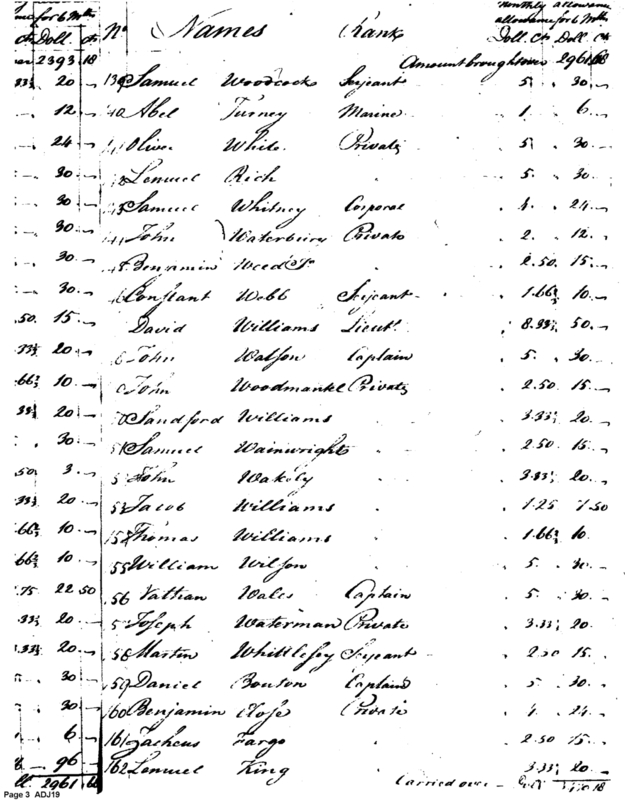 nce for 6 Mths Nº Names Rank Monthly allowance allowance for 6 Mths
cts Doll. cts Doll. Cts Doll. Cts
over 2393 18 Amount brought over 2961 68
83⅓ 20 139 Samuel Woodcock Serjeant 5 30
12 40 Abel Turney Marine 1 6
24 41 Oliver White Private 5 30
30 Lemuel Rich " 5 30
30 43 Samuel Whitney Corporal 4 24
30 44 John Waterbury Private 2 12
30 45 Benjamin Weed Jr " 2.50 15
30 46 Constant Webb Serjeant 1.66⅔ 10
.50 15 David Williams Lieut. 8.33⅓ 50
.33⅓ 20 John Watson Captain 5 30
.66⅔ 10 John Woodmankl Private 2.50 15
33⅓ 20 Sandford Williams " 3.33⅓ 20
30 51 Samuel Wainwright " 2.50 15
50 3 5 John Wakely " 3.33⅓ 20
.33⅓ 20 53 Jacob Williams " 1.25 7.50
.66⅔ 10 154 Thomas Williams " 1.66⅔ 10
66⅔ 10 55 William Wilson " 5 30
.75 22 50 56 Nathan Wales Captain 5 30
.33⅓ 20 5 Joseph Waterman Private 3.33⅓ 20
1.33⅓ 20 58 Martin Whittlesey Serjeant 2.50 15
30 159 Daniel Bouton Captain 5 30
30 160 Benjamin Close Private 4 24
6 161 Zacheus Fargo " 2.50 15
96 162 Lemuel King " 3.33⅓ 20
2961 68 Carried over
Page 3 ADJ19